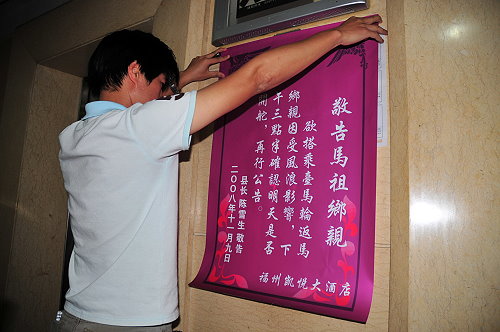 敬告馬祖鄉親
欲搭乘臺馬輪返馬
鄉親因受風浪影響，下
午三點半確認明天是否
開舵，再行公告。
县长 陈雪生 敬告
二00八年十一月九日
福州凯悦大酒店